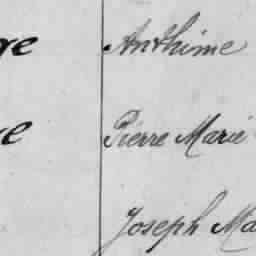 Anthime
Pierre Marie
Joseph Ma